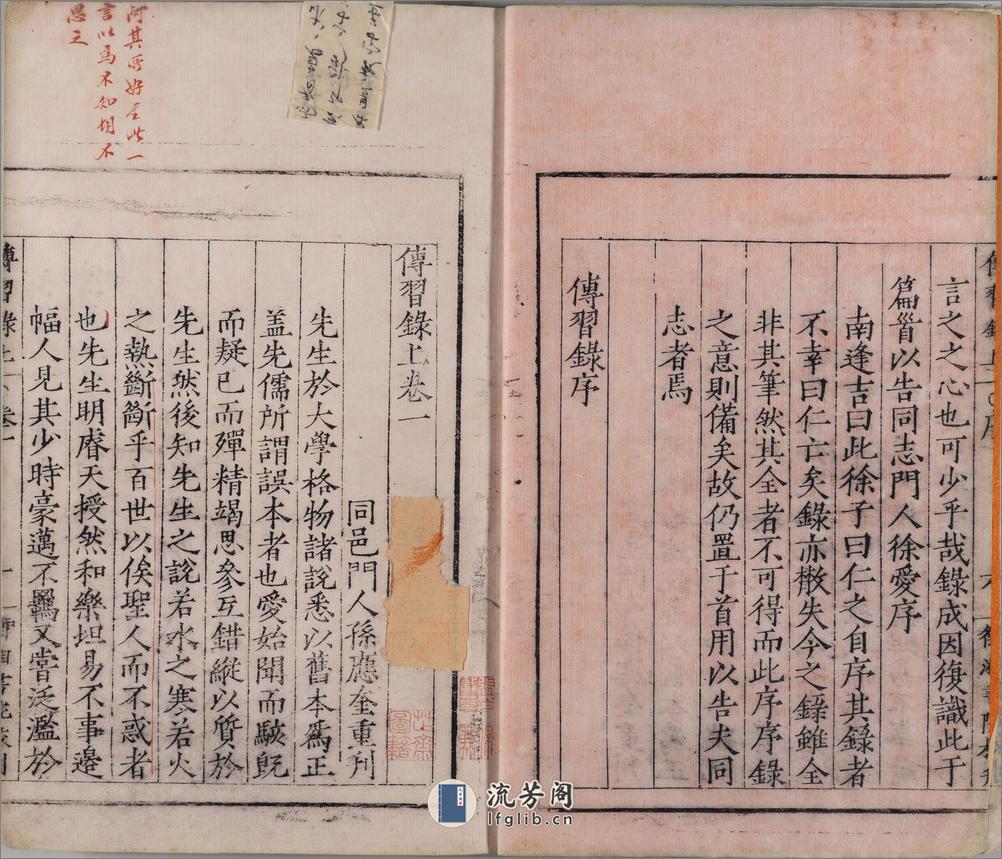 言之之心也可少乎哉錄成因復識此于
篇首以告同志門人徐愛序
南逢吉曰此徐子曰仁之自序其錄者
不幸曰仁亡矣錄亦散失今之錄雖全
非其筆然其全者不可得而此序序錄
之意則備矣故仍置于首用以告夫同
志者焉
傳習錄序
傳習錄上卷一
同邑門人孫應奎重刊
先生於大學格物諸說悉以舊本爲正
蓋先儒所謂誤本者也愛始聞而駭旣
而疑已而殫精竭思參互錯縱以質於
先生然後知先生之說若水之寒若火
之熱斷斷乎百世以俟聖人而不惑者
也先生明睿天授然和樂坦易不事邊
幅人見其少時豪邁不羈又嘗泛濫於
傳習錄上
卷一
何其所好至此一
言以爲不知胡不
思之
流芳阁
lfglib.cn